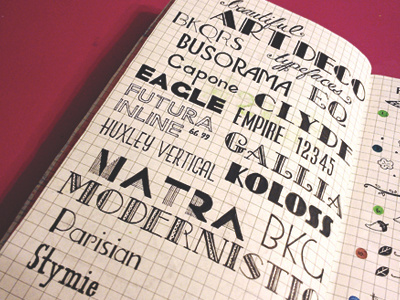 beautiful
ART DECO
typefaces
BKQRS
EQ
BUSORAMA
Capone
CLYDE
EAGLE
EMPIRE 12345
FUTURA
INLINE 66,99
GALLIA
HUXLEY VERTICAL
KOLOSS
MATRA
BKG
MODERNISTIC
Parisian
Stymie